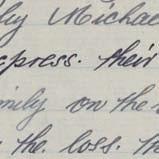 by Michael
express. their
family on the
the. loss. th